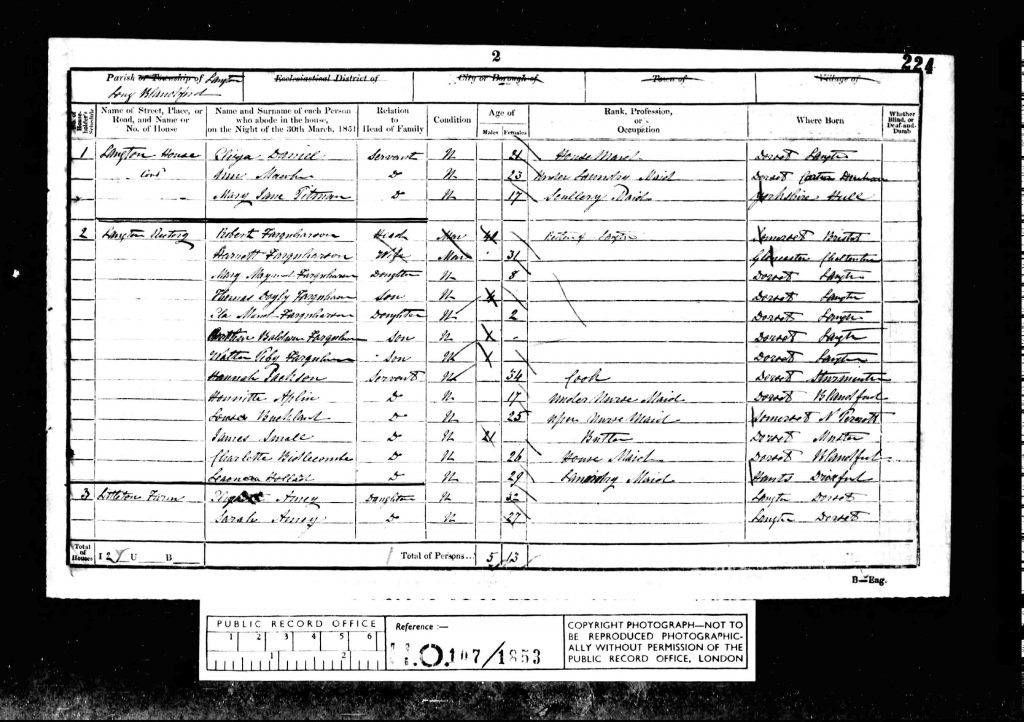 2
224
Parish or Township of Langton Ecclesiastical District of City or Borough of Town of Village of
Long Blandford
No. of Householder's Schedule Name of Street, Place, or Road, and Name or No. of House Name and Surname of each Person who abode in the house, on the Night of the 30th March, 1851 Relation to Head of Family Condition Age of Males Females Rank, Profession, or Occupation Where Born Whether Blind, or Deaf-and-Dumb
1 Langton House Eliza Daniel Servant U 21 House Maid Dorset Langton
Cont Ann D U 23 Under Laundry Maid Dorset
Mary Jane Pitman D U 17 Scullery Maid Yorkshire Hull
2 Langton Rectory Robert Farquharson Head Mar Rector of Langton Somerset Bristol
Harriett Farquharson Wife Mar 31 Gloucester Cheltenham
Mary Farquharson Daughter U 8 Dorset Langton
Thomas Doyly Farquharson Son U 4 Dorset Langton
Farquharson Daughter U 2 Dorset Langton
Baldwin Farquharson Son U - Dorset Langton
Walter Farquharson Son U Dorset Langton
Hannah Jackson Servant U 34 Cook Dorset Sturminster
Henriette Aplin D U 17 Under Nurse Maid Dorset Blandford
Louisa Buckland D U 25 Upper Nurse Maid Somerset N Perrott
James Small D U 21 Butler Dorset
Charlotte Bidlecombe D U 26 House Maid Dorset Blandford
Leonora D U 29 Laundry Maid Hants
3 Littleton Farm Amey Daughter U 32 Langton Dorset
Sarah Amey D U 27 Langton Dorset
Total of Houses I 2 U B Total of Persons... 5 13
B—Eng.
PUBLIC RECORD OFFICE
1 2 3 4 5 6
Reference :—
H.O. 107/1853
COPYRIGHT PHOTOGRAPH—NOT TO
BE REPRODUCED PHOTOGRAPHIC-
ALLY WITHOUT PERMISSION OF THE
PUBLIC RECORD OFFICE, LONDON